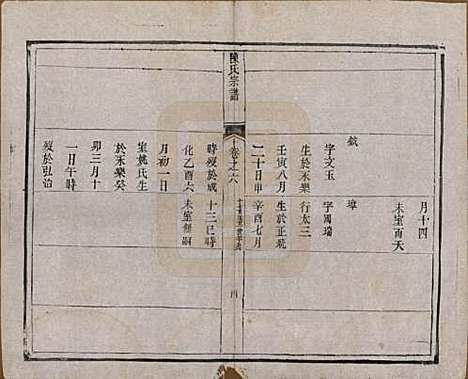 月十四
未室而夭
欽
字文玉
生於永樂
壬寅八月
二十日申
時歿於成
化乙酉六
月初一日
室姚氏生
於永樂癸
卯三月十
一日午時
歿於弘治
字國瑞
行太三
生於正統
辛酉七月
十三巳時
未室無嗣
陳氏宗譜
卷之六
四